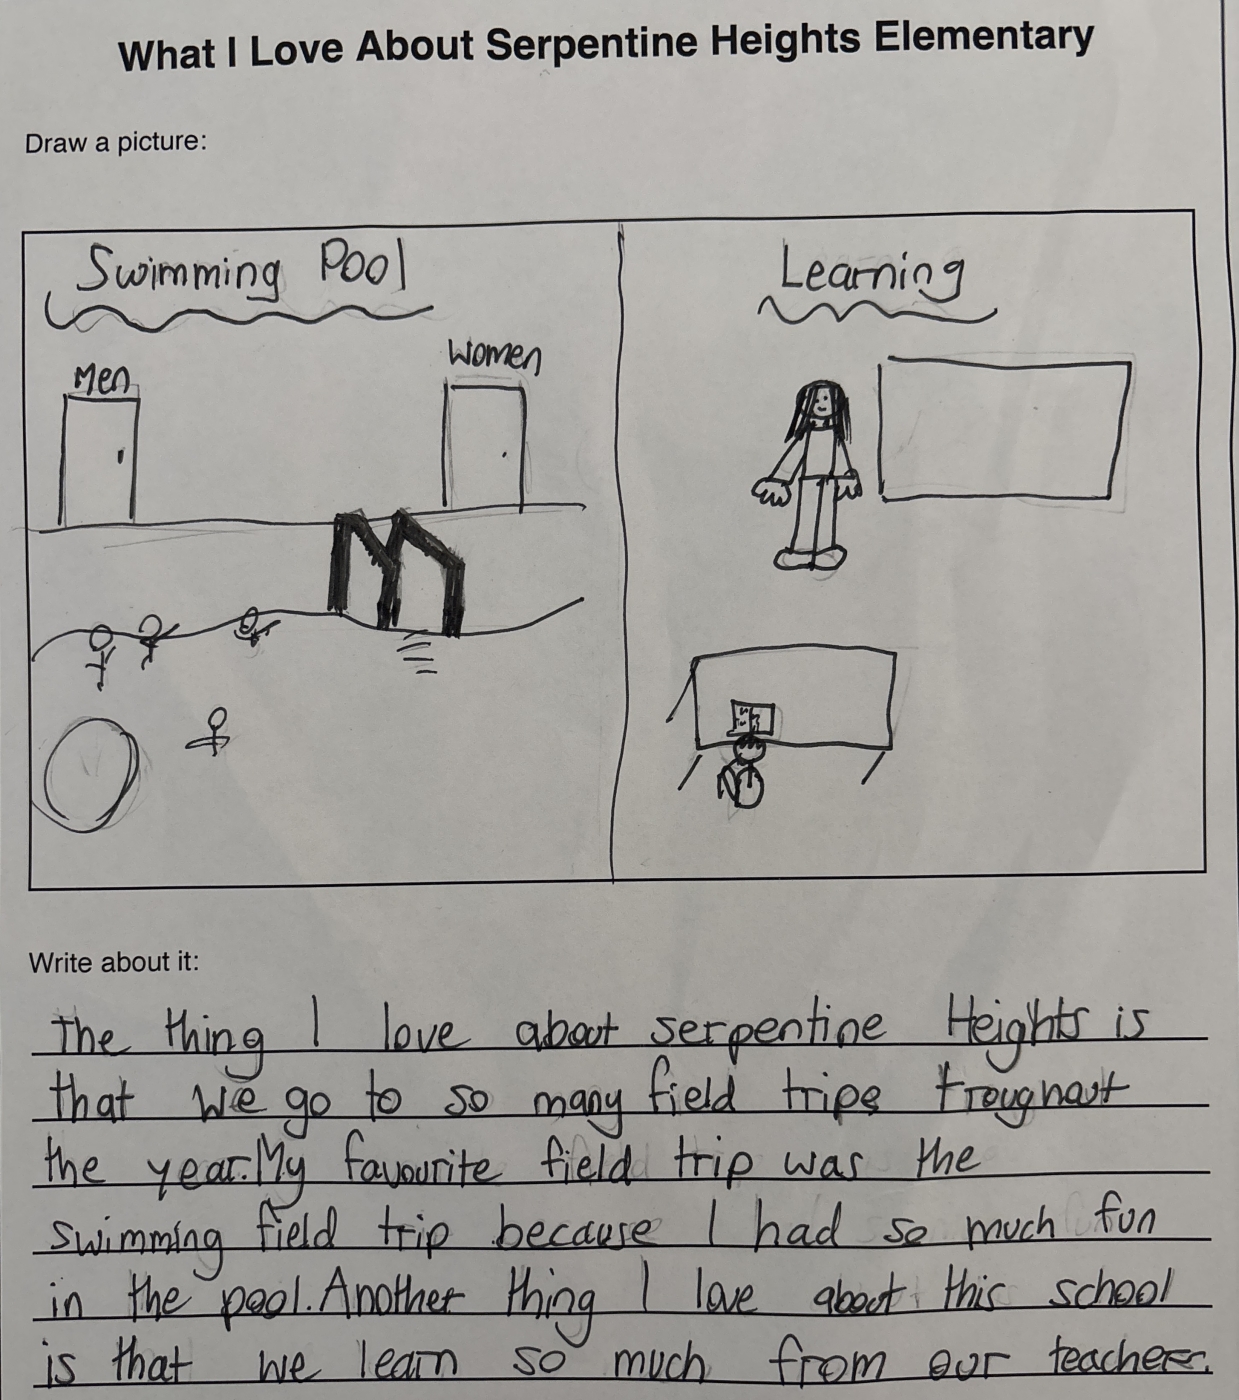 What I Love About Serpentine Heights Elementary
Draw a picture:
Swimming Pool
Men
Women
Learning
Write about it:
The thing I love about serpentine Heights is
that we go to so many field trips troughout
the year. My favourite field trip was the
swimming field trip because I had so much fun
in the pool. Another thing I love about this school
is that we learn so much from our teachers.